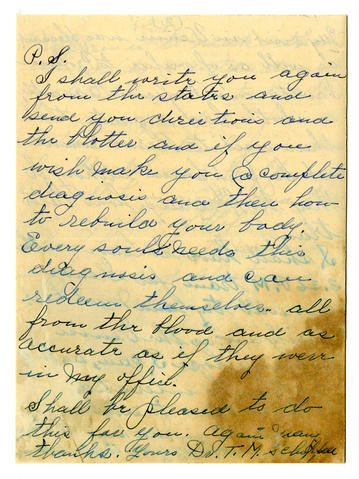 P.S.
I shall write you again
from the states and
send you directions and
the blotter and if you
wish make you a complete
diagnosis and then how
to rebuild your body.
Every souls needs this
diagnosis and can
redeem themselves. all
from the blood and as
accurate as if they were
in my office.
Shall be pleased to do
this for you. Again many
thanks. Yours Dr. T. M.